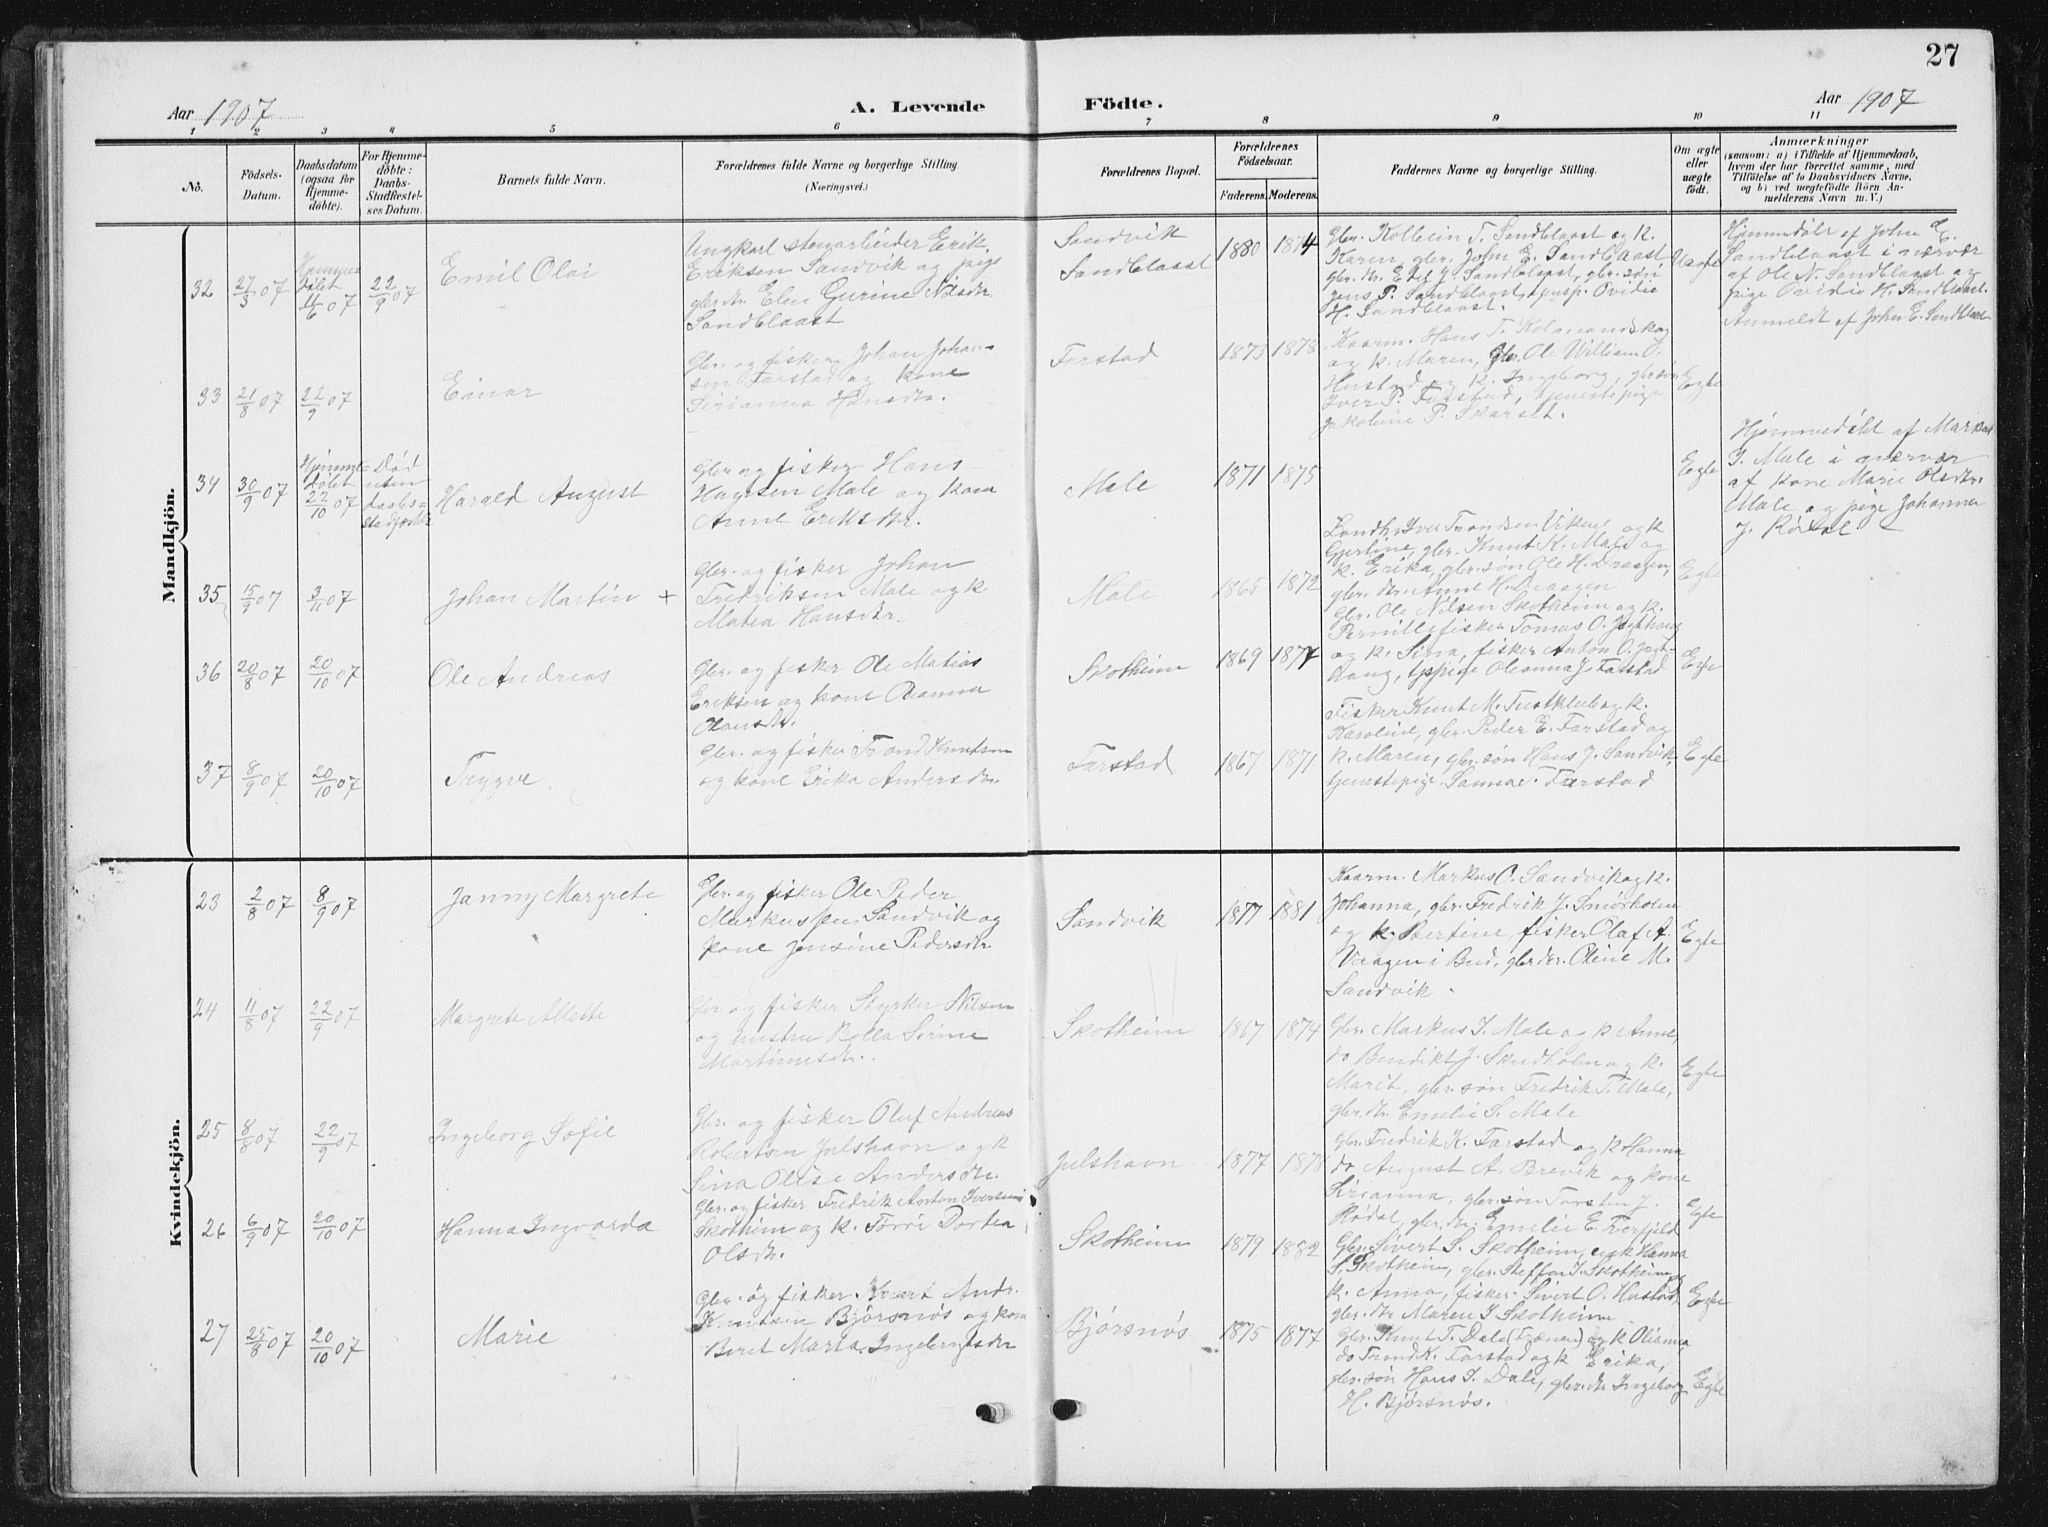 27
Aar 1907
A. Levende
Födte.
Aar 1907
1 2 3 4 5 6 7 8 9 10 11
No.
Födsels-
Datum.
Daabsdatum
(ogsaa for
Hjemme-
döbte).
For Hjemme-
döbte:
Daabs-
Stadfæstel-
ses Datum.
Barnets fulde Navn.
Forældrenes fulde Navne og borgerlige Stilling
(Næringsvei.)
Forældrenes Bopæl.
Forældrenes
Födselsaar.
Faderens. Moderens.
Faddernes Navne og borgerlige Stilling.
Om ægte
eller
uægte
födt.
Anmærkninger
(saasom: a) i Tilfælde af Hjemmedaab,
hvem der har forrettet samme, med
Tilföielse af to Daabsvidners Navne,
og b) ved uægtefödte Börn An-
melderens Navn m. V.)
Mandkjön.
32
27/3 07
Hjemme
døbt
4/6 07
22/9 07
Emil Olai
Ungkarl stenarbeider Erik
Eriksen Sandvik og pige
gbr.dtr. Elen Gurine Nilsdtr.
Sandblaast
Sandvik
Sandblaast
1880 1874
Gbr. Kolbein T. Sandblaast og k.
Karen, gbr. John E. Sandblaast
gbr. dtr. Edel J. Sandblaast, gbr. søn
Jens P. Sandblaast, tjenp. Ovidie
H. Sandblaast.
Uægte
Hjemmedøbt af John E.
Sandblaast i nærvær
af Ole N. Sandblaast og
pige Ovidie H. Sandblaast.
Anmeldt af John E. Sandblaast
33
21/8 07
22/9 07
Einar
Gbr. og fisker Johan Johan-
sen Farstad og kone
Sirianna Hansdtr.
Farstad
1873 1878
Kaarm. Hans T. Kolmandskog
og k. Maren, gbr. Ole William O.
Hustad og k. Ingeborg, gbr. søn
Iver P. Farstad, tjenestepige
Jakobine P. Skarset.
Egte
34
30/9 07
Hjemme
døbt
22/10 07
Død
uten
daabs-
stadfæst
Harald August
Gbr. og fisker Hans
Hansen Male og kone
Anne Eriksdtr.
Male
1871 1875
Egte
Hjemmedøbt af Markus
I. Male i nærvær
af kone Marie Olsdtr.
Male og pige Johanna
J. Rødal
35
15/9 07
3/11 07
Johan Martin +
Gbr. og fisker Johan
Fredriksen Male og k
Matea Hansdtr.
Male
1865 1872
Landh. Iver Trondsen Vikene og k
Gjertine, gbr. Knut K. Male og
k. Erika, gbr. søn Ole H. Draagen,
gbr. dtr. Anne H. Draagen
Egte
36
20/8 07
20/10 07
Ole Andreas
Gbr. og fisker Ole Matias
Eriksen og kone Oianna
Olausdtr.
Skotheim
1869 1877
Gbr. Ole Nilsen Skotheim og k.
Pernille fisker Tomas O. Jegthaug
og k. Sina, fisker Anton O. Jegt-
haug, tj.pige Oleanna J. Farstad
Egte
37
8/9 07
20/10 07
Trygve
Gbr. og fisker Trond Knutsen
og kone Erika Andersdtr.
Farstad
1867 1871
Fisker Knut M. Tustklub og k.
Karoline, gbr. Peder E. Farstad og
k. Maren, gbr. søn Hans J. Sandvik,
tjenestepige Sanna Farstad
Egte
Kvindekjön.
23
2/8 07
8/9 07
Janny Margrete
Gbr. og fisker Ole Peder
Markussen Sandvik og
kone Jensine Pedersdtr.
Sandvik
1877 1881
Kaarm. Markus O. Sandvik og k.
Johanna, gbr. Fredrik J. Smørholm
og k. Bertine, fisker Olaf A.
Vaagen i Bud, gbr. dtr. Oline M.
Sandvik.
Egte
24
11/8 07
22/9 07
Margrete Alette
Gbr. og fisker Styrker Nilsen
og hustru Bolla Sirine
Martinusdtr.
Skotheim
1867 1874
Gbr. Markus I. Male og k. Anne,
do Bendikt J. Skudholm og k.
Marit, gbr. søn Fredrik T. Male,
gbr. dtr. Emelie S. Male
Egte
25
8/8 07
22/9 07
Ingeborg Sofie
Gbr. og fisker Oluf Andreas
Robertsen Julshavn og k
Sina Olise Andersdtr.
Julshavn
1877 1878
Gbr. Fredrik K. Farstad og k Hanna
do August A. Brevik og kone
Sirianna, gbr. søn Torstein J.
Rødal, gbr. dtr. Emelie E. Tverfjeld
Egte
26
6/9 07
20/10 07
Hanna Ingvarda
Gbr. og fisker Fredrik Anton Iversen
Skotheim og k. Torri Dortea
Olsdtr.
Skotheim
1879 1882
Gbr. Sivert S. Skotheim, enk Hanna
S. Skotheim, gbr. Steffen J. Skotheim og
k. Anna, fisker Sivert O. Hustad,
gbr. dtr Maren I Skotheim
Egte
27
25/8 07
20/10 07
Marie
Gbr. og fisker Andr.
Knutsen Bjørsnøs og kone
Beret Marta Ingebrigtsdtr
Bjørsnøs
1875 1877
Gbr. Knut T. Dale (Frænen) og k Olianna
do Trond K. Farstad og k Erika,
gbr. søn Hans I. Dale, gbr. dtr Ingeborg
H. Bjørsnøs.
Egte